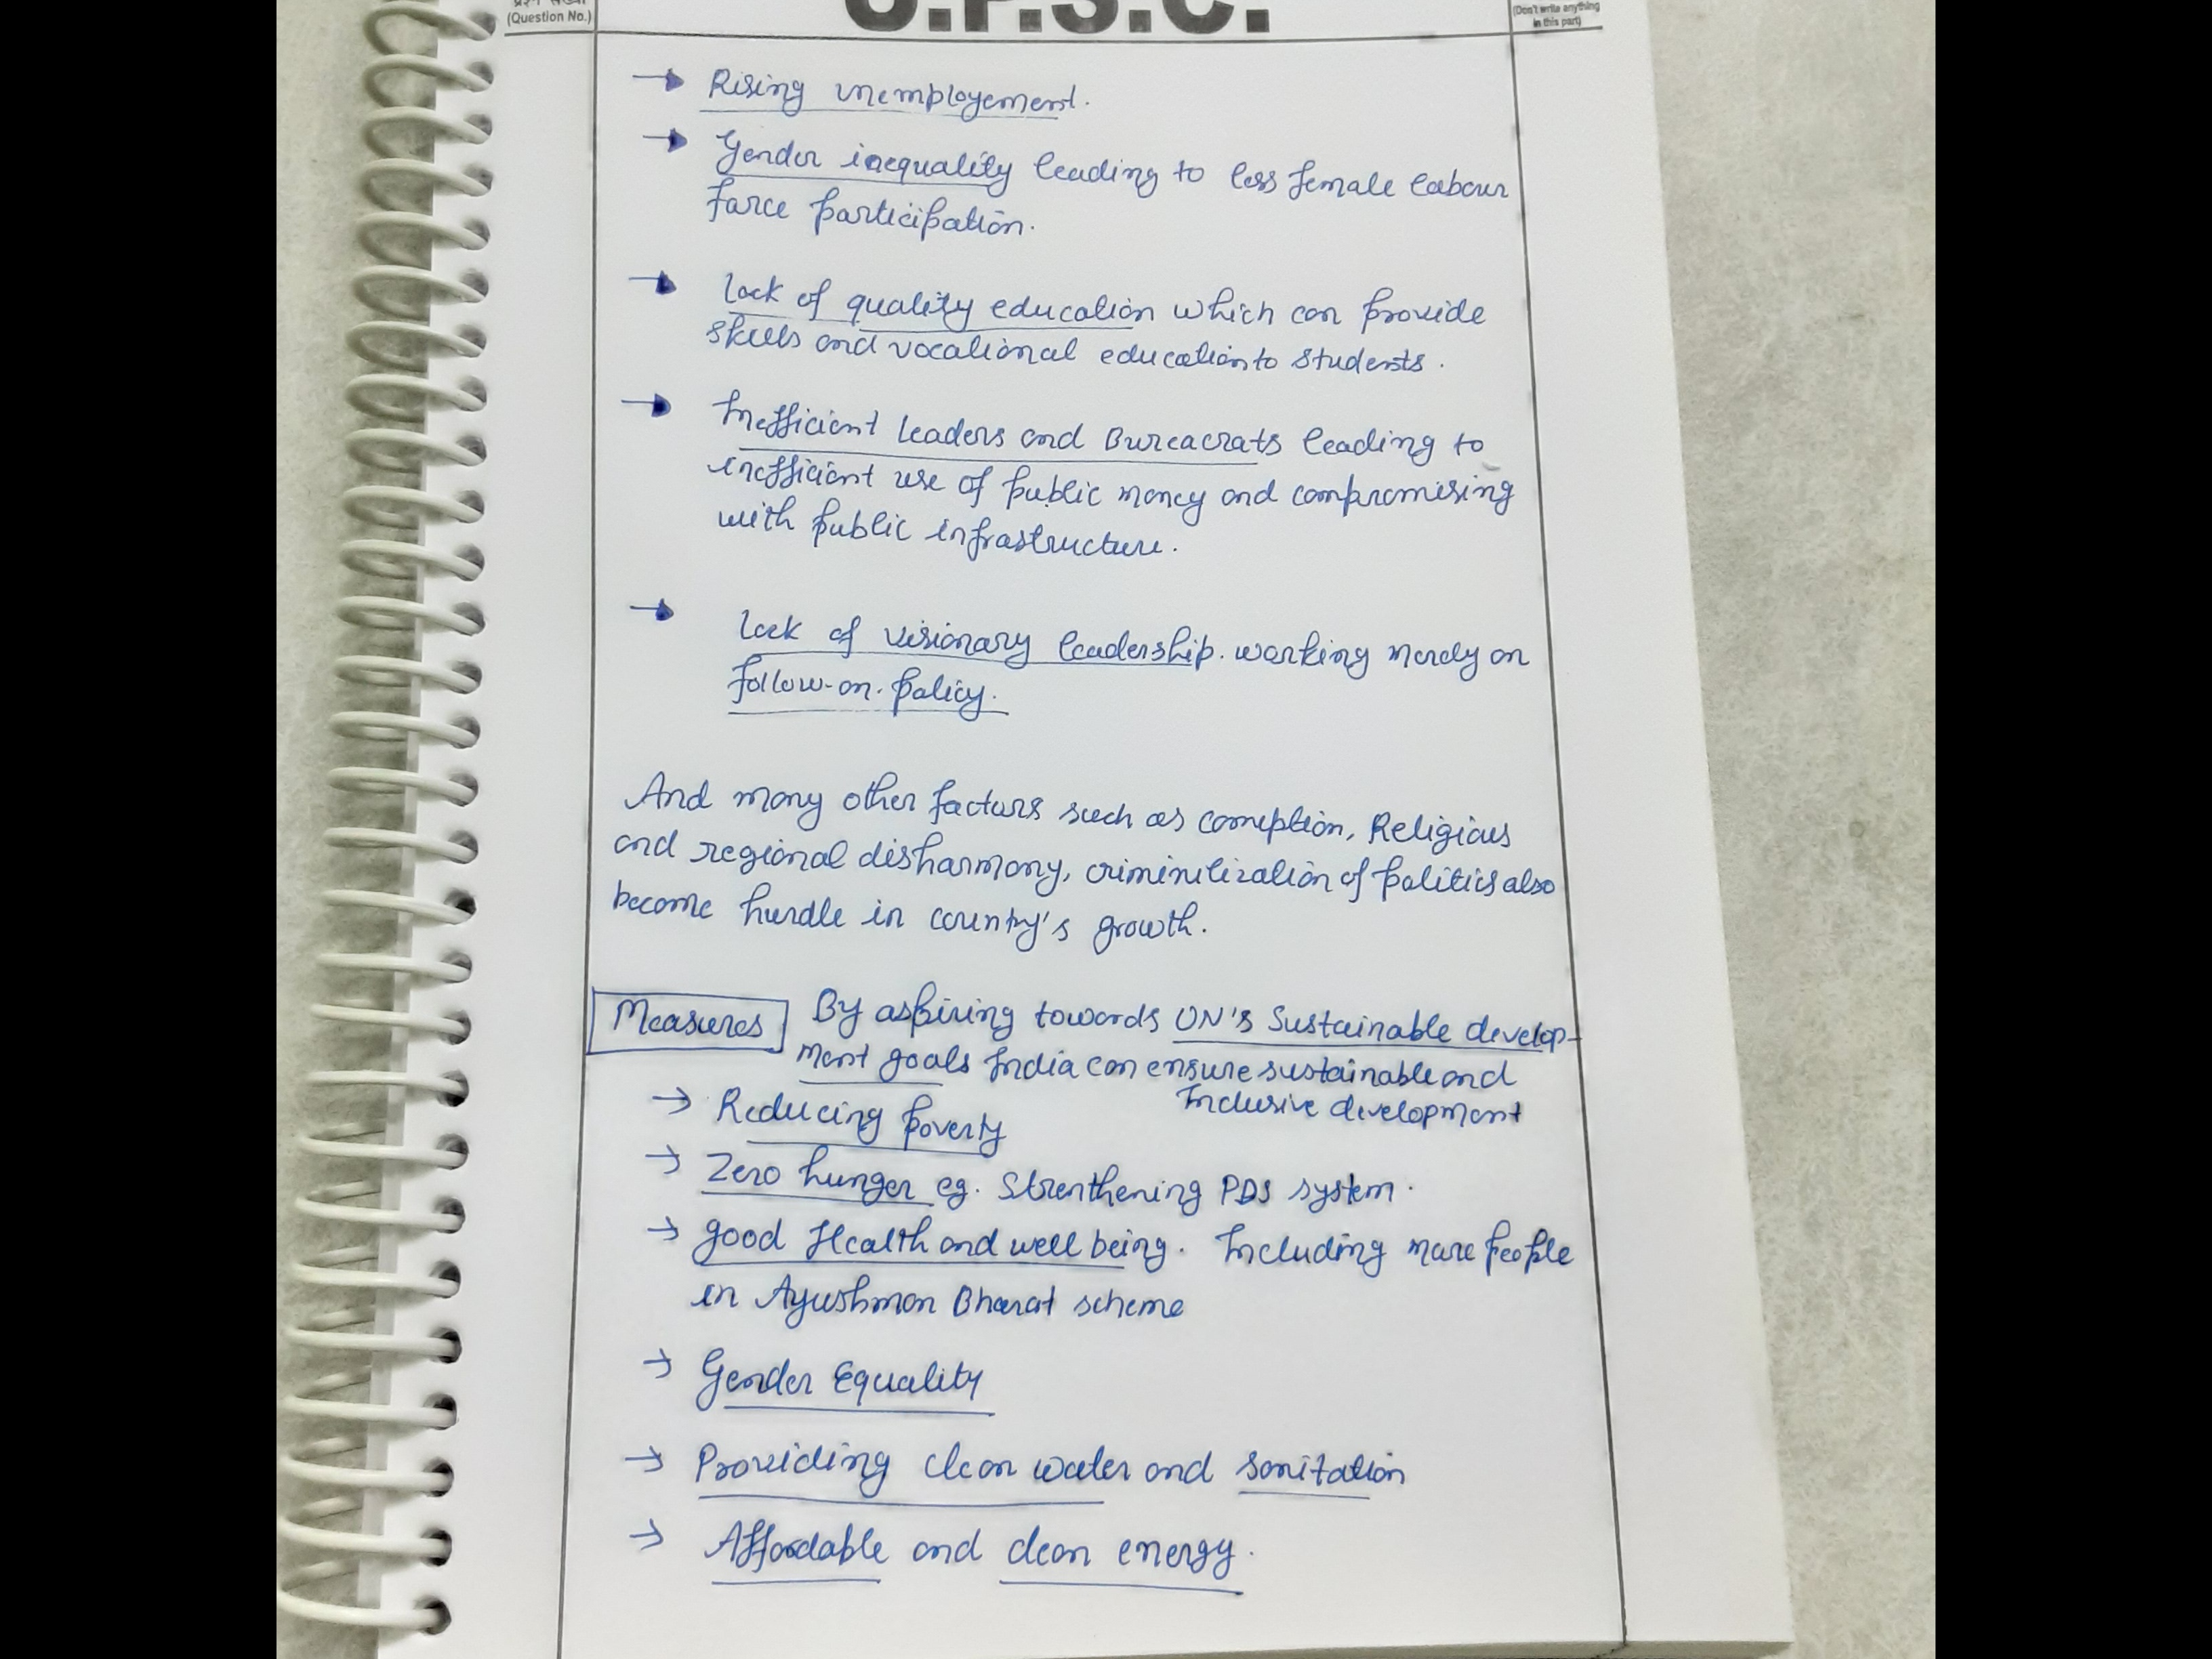 (Question No.)
U.P.S.C.
(Don't write anything
in this part)
→ Rising unemployement.
→ Gender inequality leading to less female labour
force participation.
→ lack of quality education which can provide
skills and vocational education to students.
→ Inefficient leaders and Bureacrats leading to
inefficient use of public money and compromising
with public infrastructure.
→ lack of visionary leadership. working merely on
follow-on-policy.
And many other factors such as corruption, Religious
and regional disharmony, criminilization of politics also
become hurdle in country's growth.
Measures By aspiring towards UN's Sustainable develop-
ment goals India can ensure sustainable and
Inclusive development
→ Reducing poverty
→ Zero hunger eg. Strenthening PDS system.
→ good Health and well being. Including more people
in Ayushman Bharat scheme
→ Gender Equality
→ Providing clean water and sanitation
→ Affordable and clean energy.